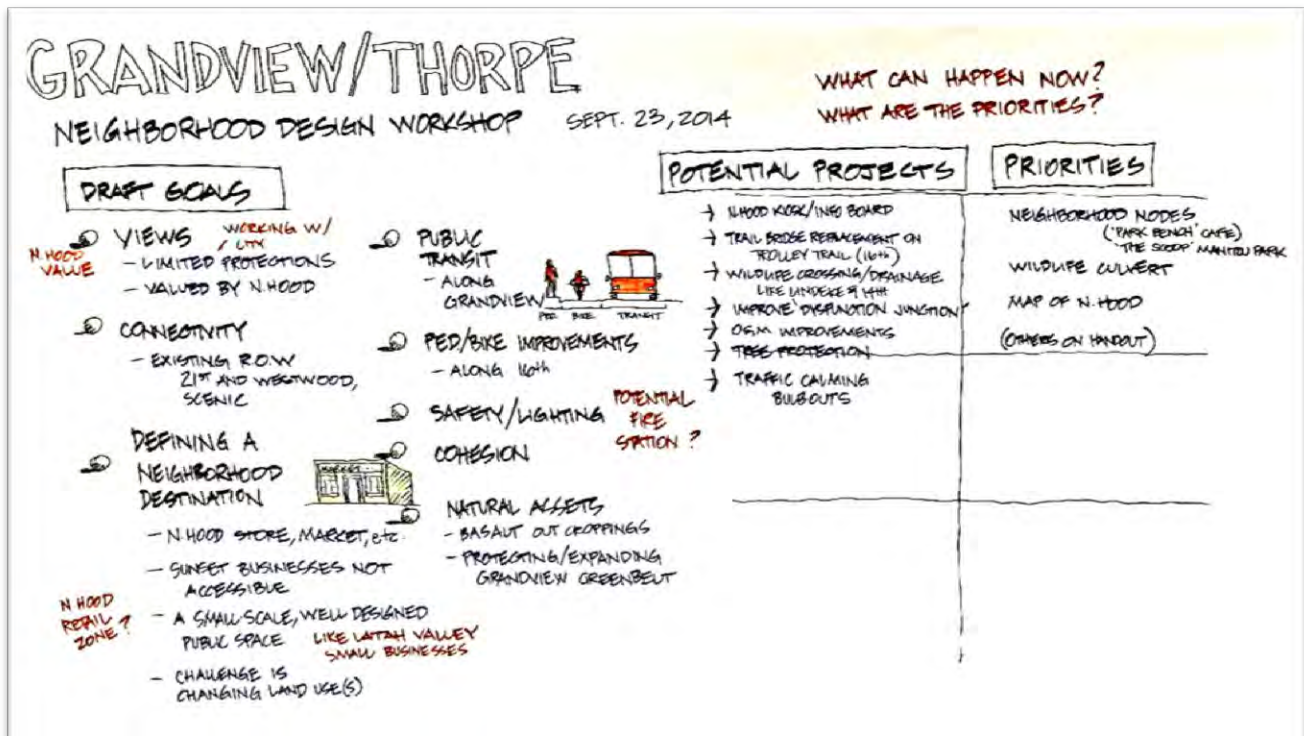 GRANDVIEW/THORPE
NEIGHBORHOOD DESIGN WORKSHOP SEPT. 23, 2014
WHAT CAN HAPPEN NOW?
WHAT ARE THE PRIORITIES?
DRAFT GOALS
N.HOOD
VALUE
VIEWS
WORKING W/
CITY
- LIMITED PROTECTIONS
- VALUED BY N.HOOD
CONNECTIVITY
- EXISTING R.O.W
21ST AND WESTWOOD,
SCENIC
DEFINING A
NEIGHBORHOOD
DESTINATION
MARKET
- N.HOOD STORE, MARKET, etc.
- SUNSET BUSINESSES NOT
ACCESSIBLE
N HOOD
RETAIL
ZONE?
- A SMALL SCALE, WELL DESIGNED
PUBLIC SPACE
LIKE LATAH VALLEY
SMALL BUSINESSES
- CHALLENGE IS
CHANGING LAND USE(S)
PUBLIC
TRANSIT
- ALONG
GRANDVIEW
PED BIKE TRANSIT
PED/BIKE IMPROVEMENTS
- ALONG 16th
SAFETY/LIGHTING
POTENTIAL
FIRE
STATION?
COHESION
NATURAL ASSETS
- BASALT OUT CROPPINGS
- PROTECTING/EXPANDING
GRANDVIEW GREENBELT
POTENTIAL PROJECTS
→ N.HOOD KIOSK/INFO BOARD
→ TRAIL BRIDGE REPLACEMENT ON
TROLLEY TRAIL (16th)
→ WILDLIFE CROSSING/DRAINAGE
LIKE LINDEKE & 14TH
→ IMPROVE 'DYSFUNCTION JUNCTION'
→ O.S.M IMPROVEMENTS
→ TREE PROTECTION
→ TRAFFIC CALMING
BULBOUTS
PRIORITIES
NEIGHBORHOOD NODES
('PARK BENCH' CAFE)
'THE SCOOP' MANITOU PARK
WILDLIFE CULVERT
MAP OF N.HOOD
(OTHERS ON HANDOUT)